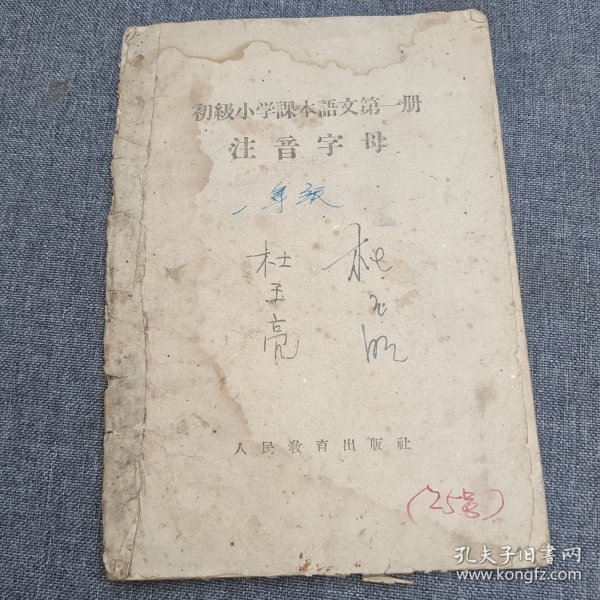 初級小学課本語文第一册
注音字母
一年级
杜玉亮
人民教育出版社
(25号)
孔夫子旧书网
www.kongfz.com